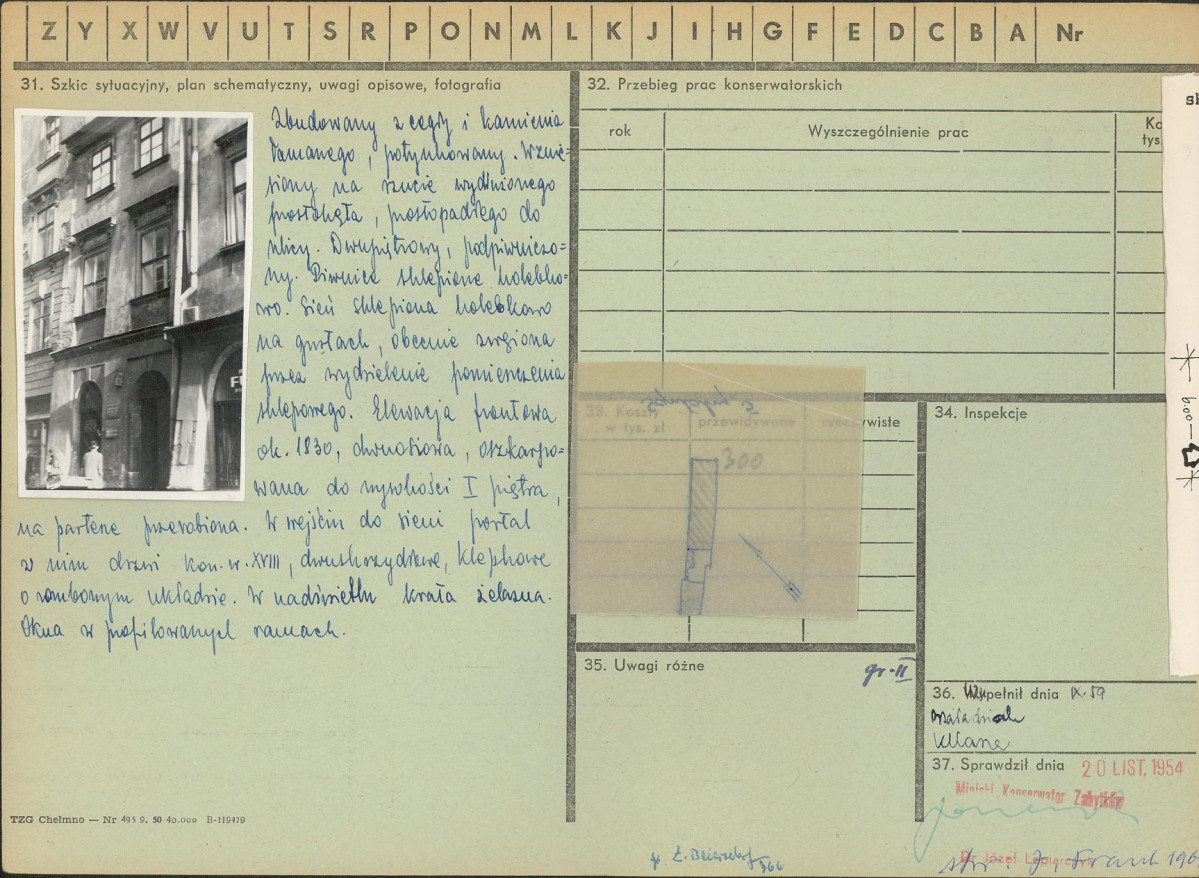 Z Y X W V U T S R P O N M L K J I H G F E D C B A Nr
31. Szkic sytuacyjny, plan schematyczny, uwagi opisowe, fotografia
Zbudowany z cegły i kamienia
łamanego, potynkowany. Wznie=
siony na rzucie wydłużonego
prostokąta, prostopadłego do
ulicy. Dwupiętrowy, podpiwniczo=
ny. Piwnice sklepione kolebko=
wo. Sień sklepiona kolebkowo
na gurtach, obecnie zwężona
przez wydzielenie pomieszczenia
sklepowego. Elewacja frontowa
ok. 1830, dwuosiowa, oszkarpo=
wana do wysokości I piętra,
na parterze przerobiona. W wejściu do sieni portal
w nim drzwi kon. w. XVIII, dwuskrzydłowe, klepkowe
o rombowym układzie. W nadświetlu krata żelazna.
Okna w profilowanych ramach.
TZG Chełmno — Nr 495 9. 50 40.000 B-119479
32. Przebieg prac konserwatorskich
rok
Wyszczególnienie prac
Ko
tys.
33. Koszty
w tys. zł
przewidywane
rzeczywiste
300
34. Inspekcje
35. Uwagi różne
gr. II
36. Wypełnił dnia IX. 59
37. Sprawdził dnia 20 LIST. 1954
Miejski Konserwator Zabytków
Dr Józef
6.00